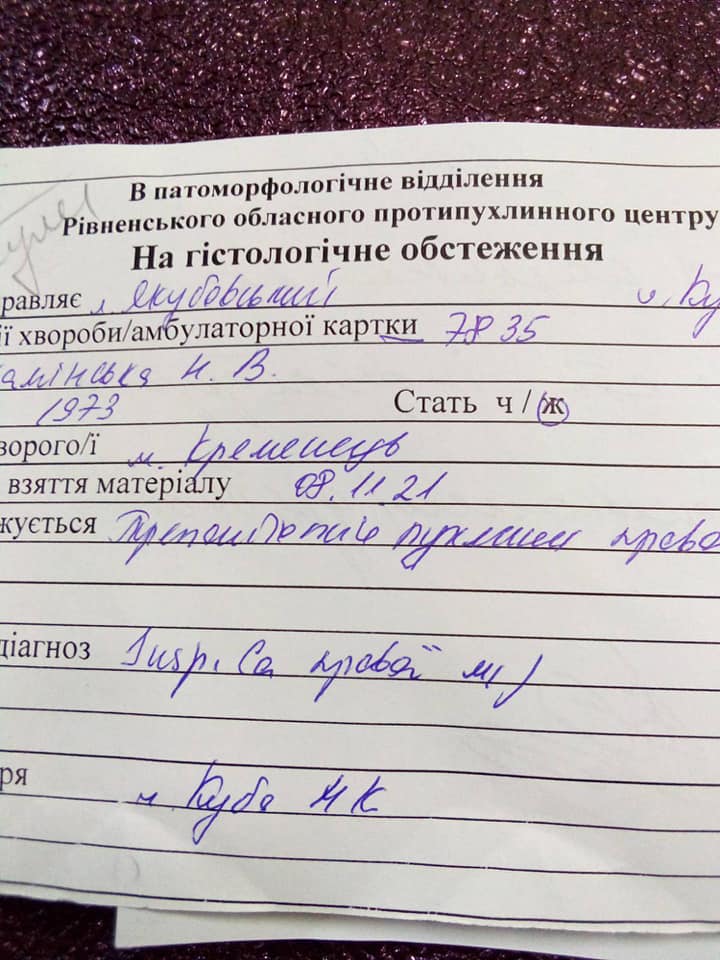 В патоморфологічне відділення
Рівненського обласного протипухлинного центру
На гістологічне обстеження
равляє л. Якубовський и. Ку
ії хвороби/амбулаторної картки 7835
амінська Н. В.
1973 Стать ч / ж
ворого/ї м. Кременець
взяття матеріалу 08.11.21
жується пухлини право
діагноз Susp. Ca правої м/
ря Куба